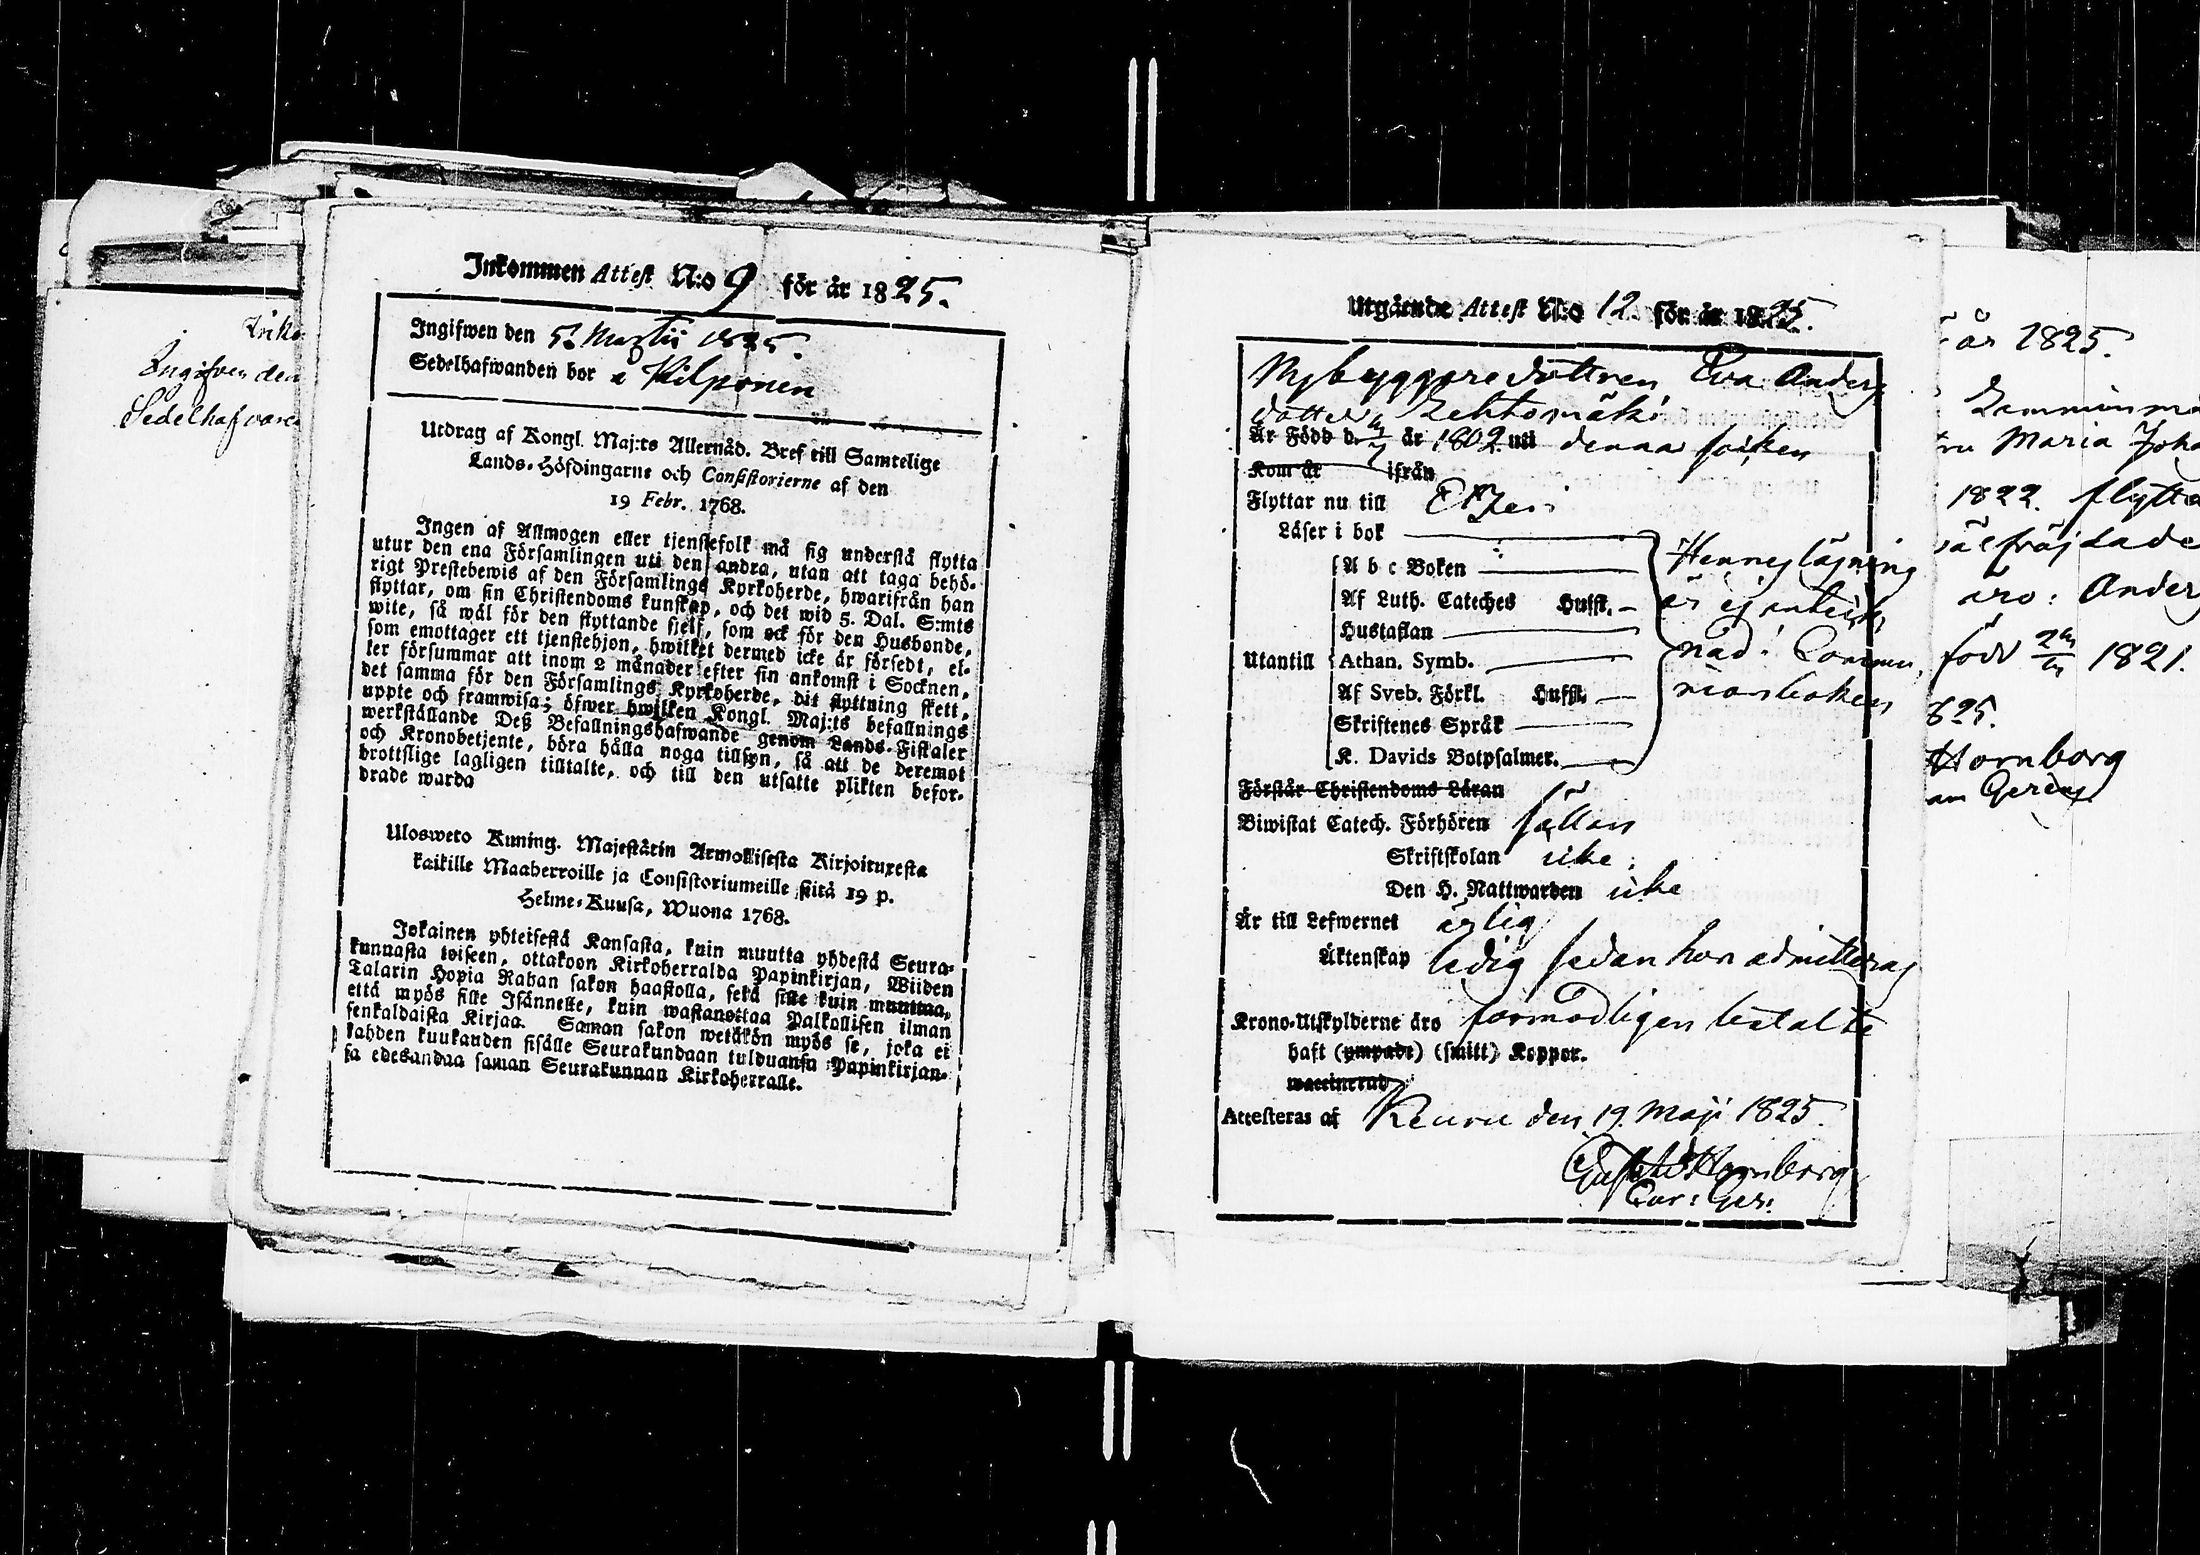 Inge
Ingifven den
Sedelhafvare
Inkommen Attest N:o 9 för år 1825.
Ingifwen den 5 Martii 1825.
Sedelhafwanden bor å Kilponen
Utdrag af Kongl. Maj:ts Allernåd. Bref till Samtelige
Lands-Höfdingarne och Consistorierne af den
19 Febr. 1768.
Ingen af Allmogen eller tjenstefolk må sig understå flytta
utur den ena Församlingen uti den andra, utan att taga behö-
rigt Prestebewis af den Församlings Kyrkoherde, hwarifrån han
flyttar, om sin Christendoms kunskap, och det wid 5. Dal. S:mts
wite, så wäl för den flyttande sjelf, som ock för den Husbonde,
som emottager ett tjenstehjon, hwilket dermed icke är försedt, el-
ler försummar att inom 2 månader efter sin ankomst i Socknen,
det samma för den Församlings Kyrkoherde, dit flyttning skett,
uppte och framwisa; öfwer hwilken Kongl. Maj:ts befallnings
werkställande Deß Befallningshafwande genom Lands-Fiskaler
och Kronobetjente, böra hålla noga tillsyn, så att de deremot
brottslige lagligen tilltalte, och till den utsatte plikten befor-
drade warda
Ulosweto Kuning. Majestätin Armollisesta Kirjoituxesta
kaikille Maaherroille ja Consistoriumeille siitä 19 p.
Helme-Kuusa, Wuona 1768.
Jokainen yhteisestä Kansasta, kuin muutta yhdestä Seura-
kunnasta toiseen, ottakoon Kirkoherralda Papinkirjan, Wiiden
Talarin Hopia Rahan sakon haastolla, sekä sille kuin muutta,
että myös sille Isännelle, kuin wastanottaa Palkollisen ilman
senkaldaista Kirjaa. Saman sakon wetäkön myös se, joka ei
kahden kuukauden sisälle Seurakundaan tulduansa Papinkirjan-
sa edesandaa saman Seurakunnan Kirkoherralle.
Utgående Attest N:o 12. för år 1825.
Nybyggaredottren Eva Anders
dotter Lehtomäki
Är Född d. år 1802 uti denna socken
Kom år ifrån
Flyttar nu till Etzeri
Läser i bok
A b c Boken
Af Luth. Cateches Hufst.
Hustaflan
Utantill Athan. Symb.
Af Sveb. Förkl. Hufst.
Skriftenes Språk
K. Davids Botpsalmer.
Hennes läsning
är ej anteck
nad i Commu
nionboken
Förstår Christendoms Läran
Biwistat Catech. Förhören sällan
Skriftskolan icke
Den H. Nattwarden icke
Är till Lefwernet ärlig
Äktenskap ledig sedan hon admitteras
Krono-Utskylderne äro förmodligen betalte
haft (ympade) (smitt) Koppor.
waccinerad
Attesteras af Keuru den 19. Maji 1825.
Gustaf Hornborg
Cur: Ger:
år 1825.
Maria Joha
1822. flytta
välfräjdade
äro: Anders
född 1821.
825.
Hornborg
Gerens